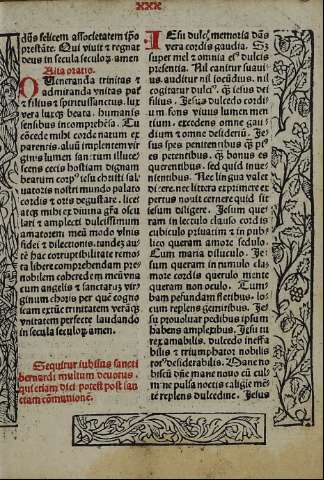 XXX
dñs felicem associetatem ipõ
prestãte. Qui viuit et regnat
deus in secula seculoꝝ. amen
Alia oratio.
O Veneranda trinitas et
admiranda vnitas pat̃
et filius et spiritussanctus. lux
vera lucẽs beata. humanis
sensibus incomprehẽsa. Tu
cõcede mihi corde natum ex
parentis. aluũ implentem vir
ginis lumen sanctum illuce
scens cecis hostiam dignam
beatorum corpus iesu christi sal
uatoris nostri mundo palato
cordis et oris degustare. lice
atqꝫ mihi ex diuina gr̃a oscu
lari et amplecti dulcissimum
amatorem meũ modo vlnis
fidei et dilectionis. tandeꝫ au
tẽ hac corruptibilitate remo
ta libere comprehendam pre
nobilem coheredem meũ vna
cum angelis et sanctaruꝫ vir
ginum choris per quẽ cogno
scam
vnitatem perfecte laudando
in secula seculoꝝ amen.
Sequitur iubilus sancti
bernardi multum deuotus.
qui etiam dici potest post san
ctam cõmunionẽ.
IEsu dulcꝫ memoria dans
vera cordis gaudia. Sꝫ
super mel et omnia eiꝰ dulcis
presentia. Nil canitur suaui
us. auditur nil iocũdius. nil
cogitatur dulciꝰ. q̃ iesus dei
filius. Jesus dulcedo cordiũ
um fons viuus lumen men
tium. excedens omne gau
dium et omne desideriũ. Je
sus spes penitentibus q̃ pi
us petentibus. q̃ bonus te
querentibus. sed quid inue
nientibus. Nec lingua valet
dicere. nec littera exprimere ex
pertus nouit cernere quid sit
iesum diligere. Jesum que
ram in lectulo clauso cordis
cubiculo priuatim et in pub
lico queram amore sedulo.
Cum maria diluculo. Je
sum queram in tumulo. cla
mor cordis querulo mente
queram non oculo. Tum
bam perfundam fletibus. lo
cum replens gemitibus. Jesu
su prouoluar pedibus ipsius
habens amplexibus. Jesu tu
rex amabilis. dulcedo ineffa
bilis et triumphator nobilis
totꝰ desiderabilis. Mane no
biscũ dñe mane nouo cũ lu
mine pulsa noctis caligie mẽ
tẽ replens dulcedine. Jesus